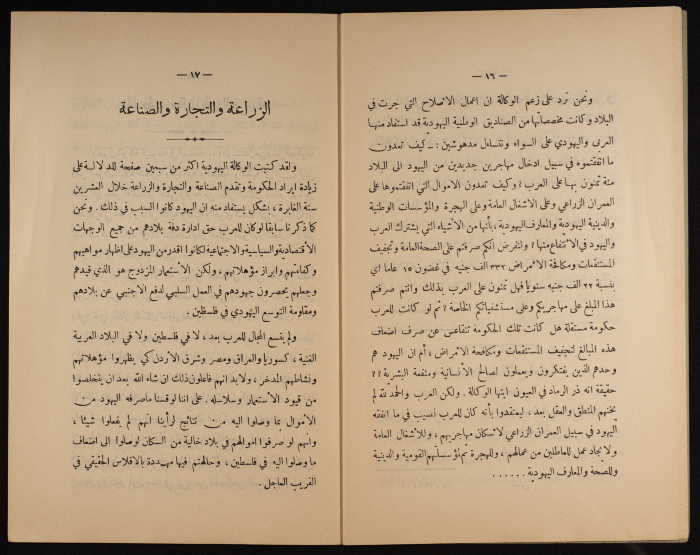 — ١٦ —
ونحن نرد على زعم الوكالة ان اعمال الاصلاح التي جرت في
البلاد وكانت مخصصاتها من الصناديق الوطنية اليهودية قد استفاد منها
العربي واليهودي على السواء ونتساءل مدهوشين : ـ كيف تعدون
ما انفقتموه في سبيل ادخال مهاجرين جديدين من اليهود الى البلاد
منة تمنون بها على العرب ؟ وكيف تعدون الاموال التي انفقتموها على
العمران الزراعي وعلى الاشغال العامة وعلى الهجرة والمؤسسات الوطنية
والدينية اليهودية والمعارف اليهودية ، بأنها من الاشياء التي يشترك العرب
واليهود في الانتفاع منها ؟ ولنفرض انكم صرفتم على الصحة العامة وتجفيف
المستنقعات ومكافحة الامراض ٣٣٢ الف جنيه في غضون ١٥ عاما اي
بنسبة ٢٢ الف جنيه سنويا فهل تمنون على العرب بذلك وانتم صرفتم
هذا المبلغ على مهاجريكم وعلى مستشفياتكم الخاصة ؟ ثم لو كانت للعرب
حكومة مستقلة هل كانت تلك الحكومة تتقاعس عن صرف اضعاف
هذه المبالغ لتجفيف المستنقعات ومكافحة الامراض ، أم ان اليهود هم
وحدهم الذين يفتكرون ويعملون لصالح الانسانية ومنفعة البشرية ؟؟
حقيقة انه ذر الرماد في العيون ايتها الوكالة . ولكن العرب والحمد لله لم
يخنهم المنطق والعقل بعد ، ليعتقدوا بأنه كان للعرب نصيب في ما انفقه
اليهود في سبيل العمران الزراعي لاسكان مهاجريهم ، وللاشغال العامة
ولايجاد عمل للعاطلين من عمالهم ، وللهجرة ثم لمؤسساتهم القومية والدينية
وللصحة والمعارف اليهودية . . . . . .
— ١٧ —
الزراعة والتجارة والصناعة
ولقد كتبت الوكالة اليهودية اكثر من سبعين صفحة للدلالة على
زيادة ايراد الحكومة وتقدم الصناعة والتجارة والزراعة خلال العشرين
سنة الغابرة ، بشكل يستفاد منه ان اليهود كانوا السبب في ذلك . ونحن
كما ذكرنا سابقا لو كان للعرب حق ادارة دفة بلادهم من جميع الوجهات
الاقتصادية والسياسية والاجتماعية لكانوا اقدر من اليهود على اظهار مواهبهم
وكفاءتهم وابراز مؤهلاتهم ، ولكن الاستعمار المزدوج هو الذي قيدهم
وجعلهم يحصرون جهودهم في العمل السلبي لدفع الاجنبي عن بلادهم
ومقاومة التوسع اليهودي في فلسطين .
ولم يتسع المجال للعرب بعد ، لا في فلسطين ولا في البلاد العربية
الغنية ، كسوريا والعراق ومصر وشرق الاردن كي يظهروا مؤهلاتهم
ونشاطهم المدخر ، ولا بد انهم فاعلون ذلك ان شاء الله بعد ان يتخلصوا
من قيود الاستعمار وسلاسله . على اننا لو قسنا ما صرفه اليهود من
الاموال بما وصلوا اليه من نتائج لرأينا انهم لم يفعلوا شيئا ،
وانهم لو صرفوا اموالهم في بلاد خالية من السكان لوصلوا الى اضعاف
ما وصلوا اليه في فلسطين ، وحالتهم فيها مهددة بالافلاس الحقيقي في
القريب العاجل .